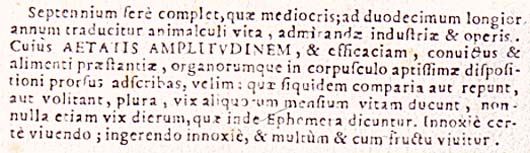 Septennium ferè complet, quæ mediocris; ad duodecimum longior
annum traducitur animalculi vita, admirandæ industriæ & operis.
Cuius AETATIS AMPLITVDINEM, & efficaciam, conuictus &
alimenti præstantiæ, organorumque in corpusculo aptissimæ disposi-
tioni prorsus adscribas, velim: quæ siquidem comparia aut repunt,
aut volitant, plura, vix aliquorum mensium vitam ducunt, non-
nulla etiam vix dierum, quæ inde Ephemera dicuntur. Innoxiè cer-
tè viuendo; ingerendo innoxiè, & multùm & cum fructu viuitur.